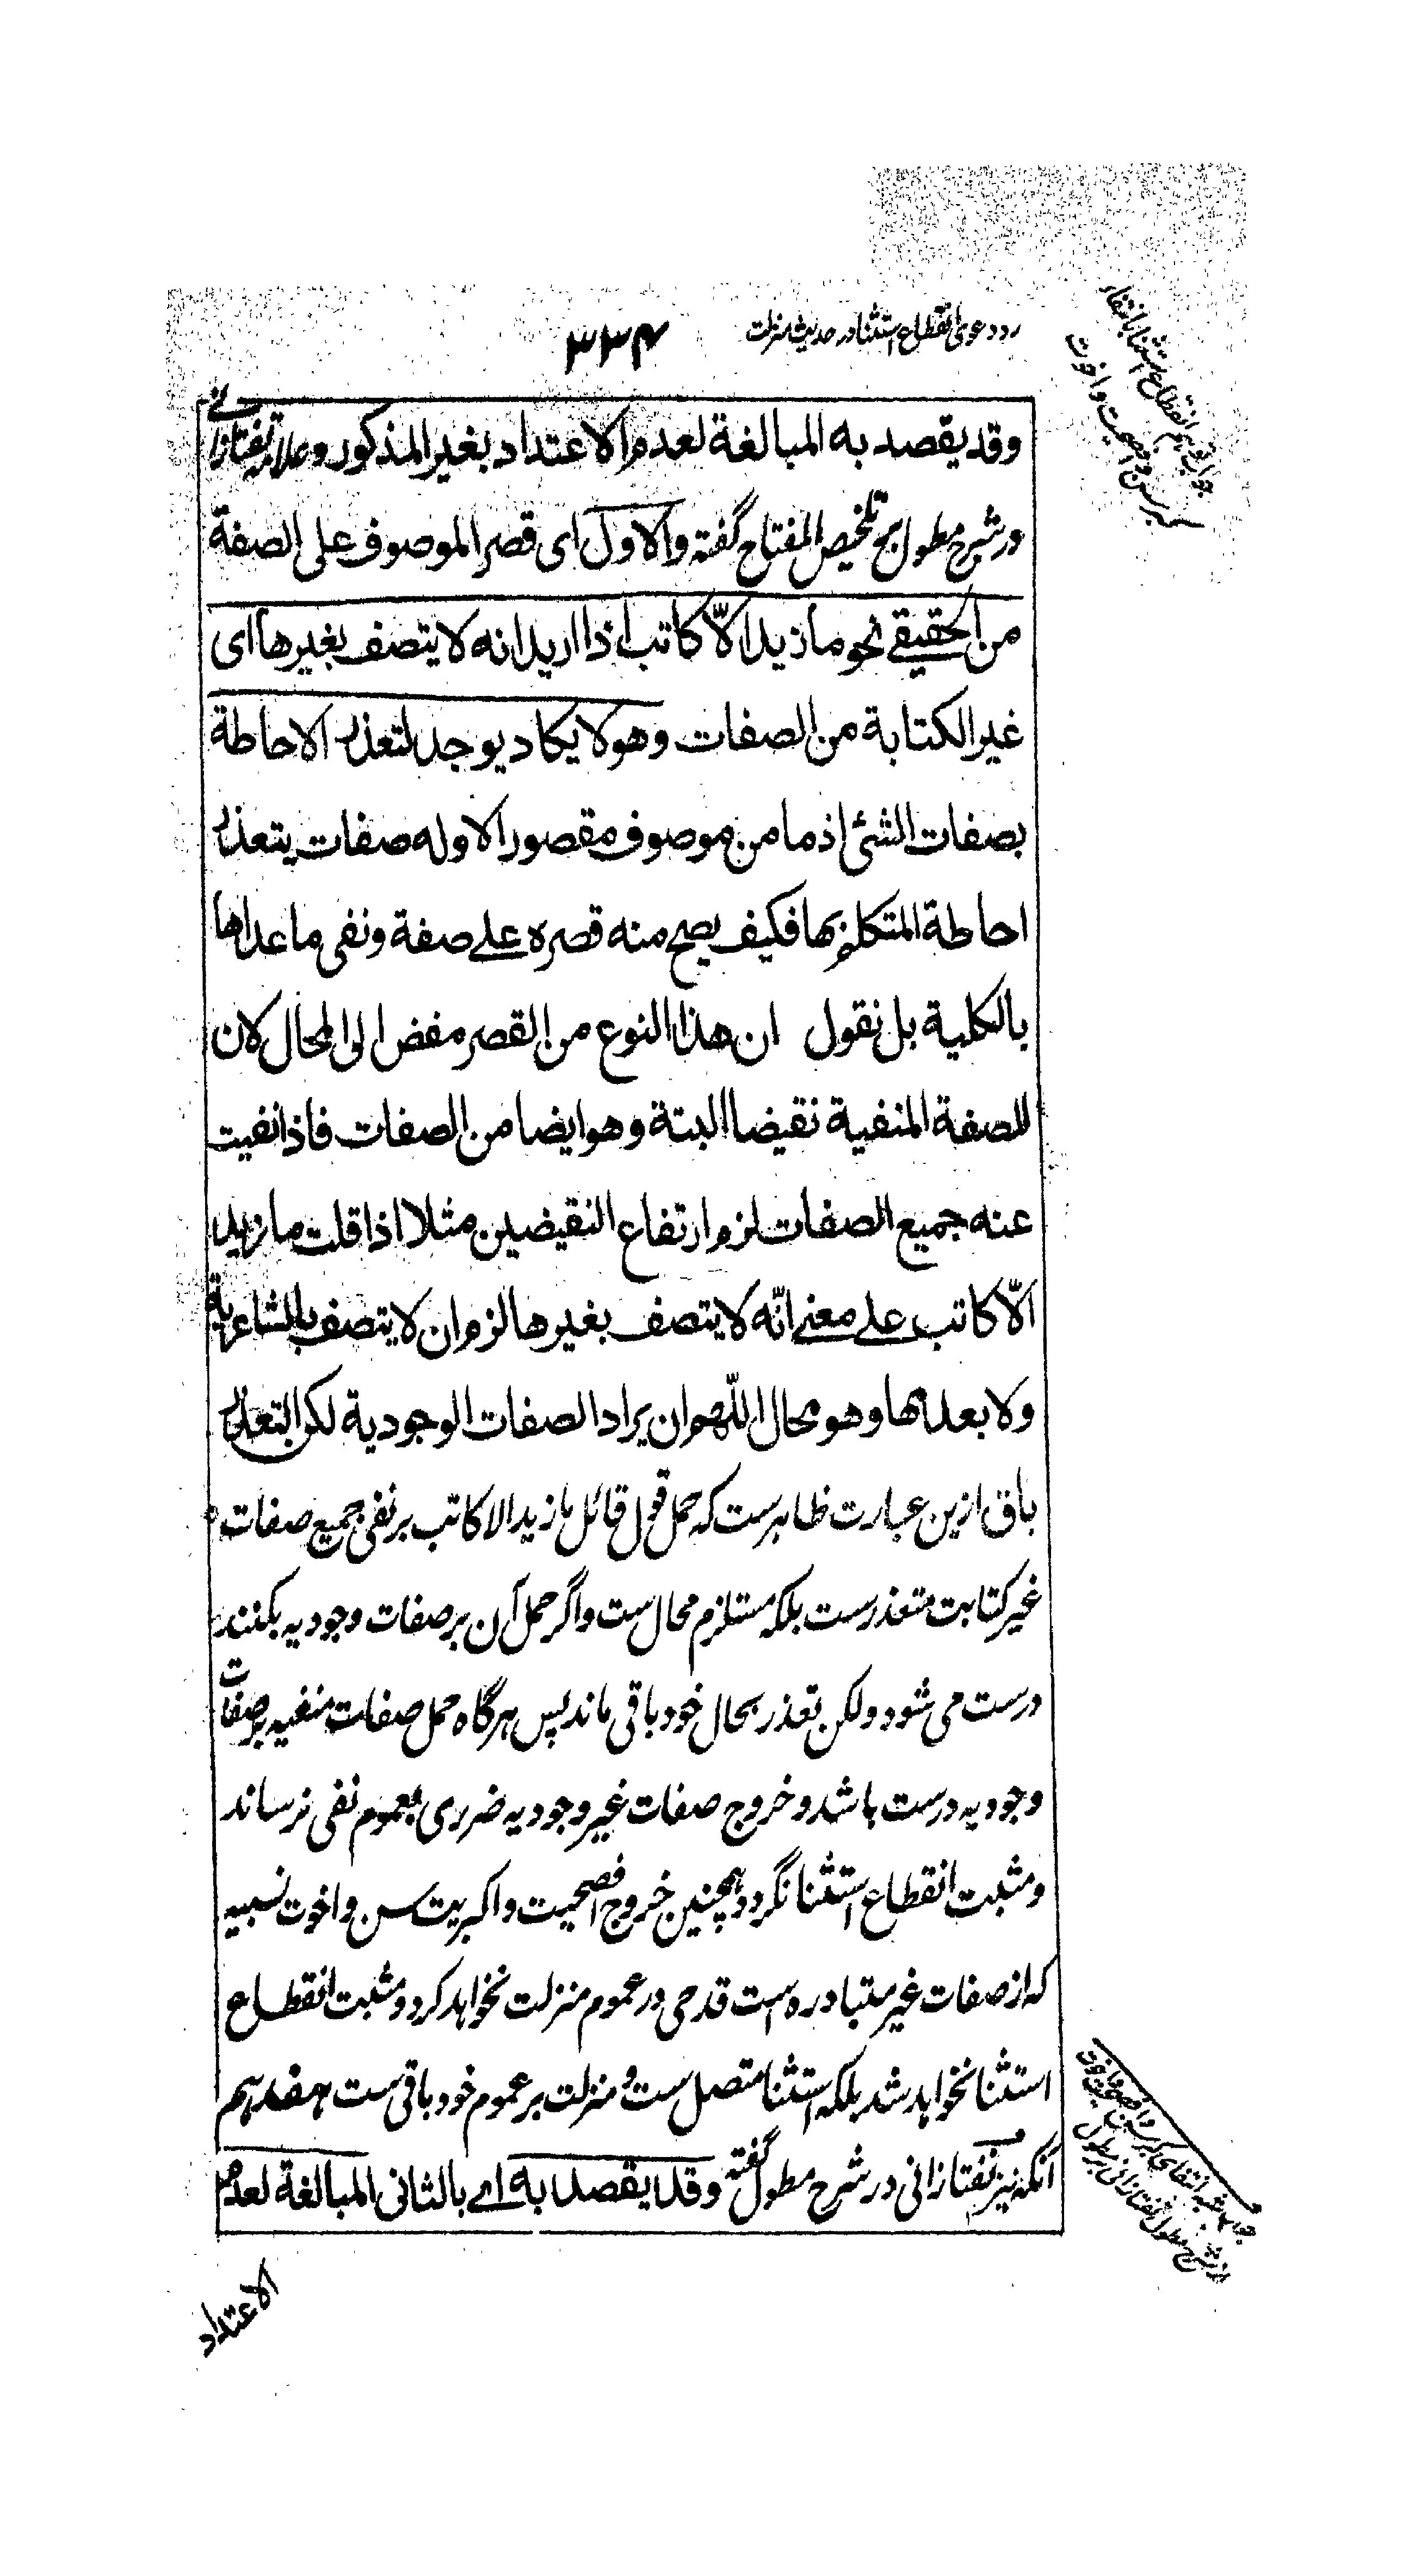 رد دعوی انقطاع استثنا در حدیث منزلت
۳۳۴
جواب توهم انقطاع استثنا بانتفاء
کبر سن و افصحیت و اخوت
وقد يقصد به المبالغة لعدم الاعتداد بغير المذكور و علامه تفتازانی
در شرح مطول بر تلخیص المفتاح گفته والاول ای قصر الموصوف علی الصفة
من الحقیقے نحو ما زید الّا کاتب اذا ارید انه لا یتصف بغیرها ای
غیر الکتابة من الصفات وهو لا یکاد یوجد لتعذر الاحاطة
بصفات الشئ اذ ما من موصوف مقصور الا وله صفات یتعذر
احاطة المتکلم بها فکیف یصح منه قصره علے صفة ونفی ما عداها
بالکلیة بل نقول ان هذا النوع من القصر مفض الی المحال لان
للصفة المنفیة نقیضا البتة وهو ایضا من الصفات فاذا نفیت
عنه جمیع الصفات لزم ارتفاع النقیضین مثلا اذا قلت ما زید
الّا کاتب علے معنے انّه لا یتصف بغیرها لزم ان لا یتصف بالشاعریة
ولا بعدمها وهو محال اللّهم ان یراد الصفات الوجودیة لکن التعذر
باق ازین عبارت ظاهرست که حمل قول قائل ما زید الا کاتب بر نفی جمیع صفات
غیر کتابت متعذرست بلکه مستلزم محال ست و اگر حمل آن بر صفات وجودیه بکنند
درست می شود ولکن تعذر بحال خود باقی ماند پس هرگاه حمل صفات منفیه بر صفات
وجودیه درست باشد و خروج صفات غیر وجودیه ضرری بعموم نفی نرساند
و مثبت انقطاع استثنا نگردد همچنین خروج افصحیت و اکبریت سن و اخوت نسبیه
که از صفات غیر متبادره است قدحی در عموم منزلت نخواهد کرد و مثبت انقطاع
استثنا نخواهد شد بلکه استثنا متصل ست و منزلت بر عموم خود باقی ست هفدهم
آنکه نیز تفتازانی در شرح مطول گفته وقد یقصد به اے بالثانی المبالغة لعدم
جواب شبه انتفای کبر سن و افصحیت و اخوت
از شرح مطول تفتازانی
الاعتداد